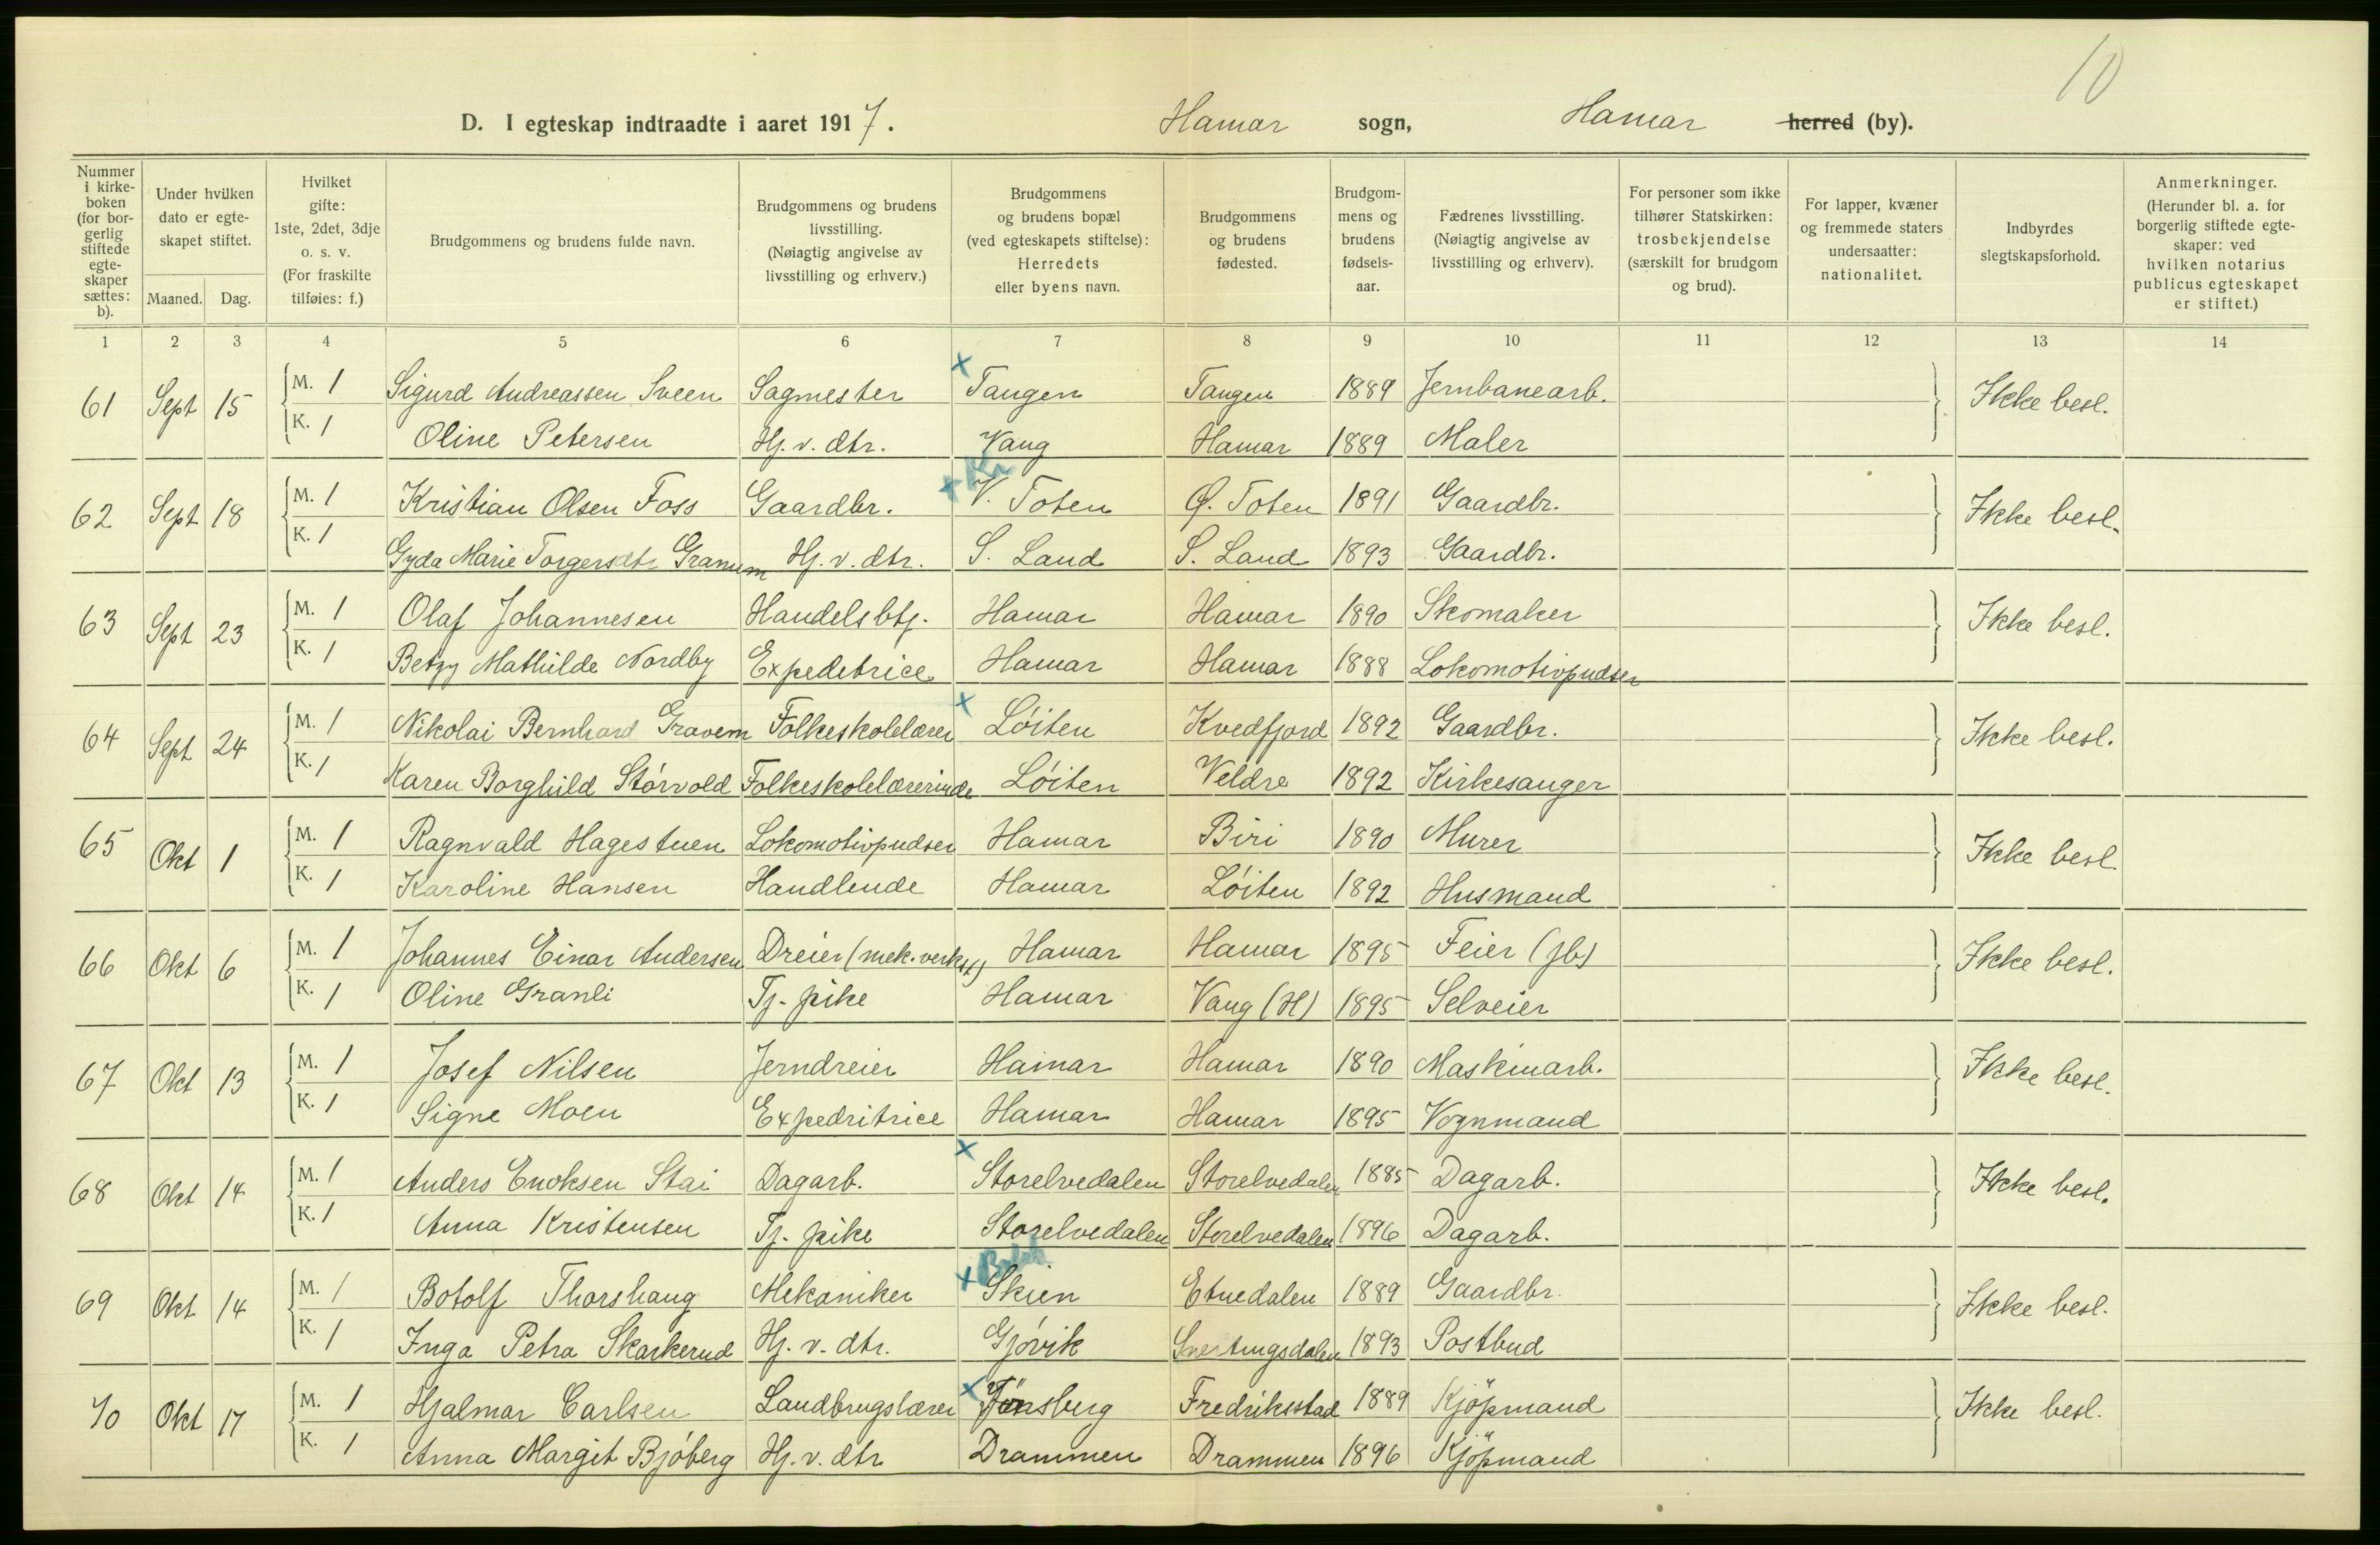 10
D. I egteskap indtraadte i aaret 1917. Hamar sogn, Hamar herred (by).
Nummer i kirke- boken (for bor- gerlig stiftede egte- skaper sættes: b).
Under hvilken dato er egte- skapet stiftet.
Maaned. Dag.
Hvilket gifte: 1ste, 2det, 3dje o. s. v. (For fraskilte tilføies: f.)
Brudgommens og brudens fulde navn.
Brudgommens og brudens livsstilling. (Nøiagtig angivelse av livsstilling og erhverv.)
Brudgommens og brudens bopæl (ved egteskapets stiftelse): Herredets eller byens navn.
Brudgommens og brudens fødested.
Brudgom- mens og brudens fødsels- aar.
Fædrenes livsstilling. (Nøiagtig angivelse av livsstilling og erhverv).
For personer som ikke tilhører Statskirken: trosbekjendelse (særskilt for brudgom og brud).
For lapper, kvæner og fremmede staters undersaatter: nationalitet.
Indbyrdes slegtskapsforhold.
Anmerkninger. (Herunder bl. a. for borgerlig stiftede egte- skaper: ved hvilken notarius publicus egteskapet er stiftet.)
1 2 3 4 5 6 7 8 9 10 11 12 13 14
61 Sept 15 M. 1 Sigurd Andreassen Sveen Sagmester x Tangen Tangen 1889 Jernbanearb. Ikke besl.
K. 1 Oline Petersen Hj. v. dtr. Vang Hamar 1889 Maler
62 Sept 18 M. 1 Kristian Olsen Foss Gaardbr. x V. Toten Ø. Toten 1891 Gaardbr. Ikke besl.
K. 1 Gyda Marie Torgersdtr Granum Hj. v. dtr. S. Land S. Land 1893 Gaardbr.
63 Sept 23 M. 1 Olaf Johannesen Handelsbtj. Hamar Hamar 1890 Skomaker Ikke besl.
K. 1 Betzy Mathilde Nordby Expeditrice Hamar Hamar 1888 Lokomotivpudser
64 Sept 24 M. 1 Nikolai Bernhard Gravem Folkeskolelærer x Löiten Kvedfjord 1892 Gaardbr. Ikke besl.
K. 1 Karen Borghild Störvold Folkeskolelærerinde Löiten Veldre 1892 Kirkesanger
65 Okt 1 M. 1 Ragnvald Hagestuen Lokomotivpudser Hamar Biri 1890 Murer Ikke besl.
K. 1 Karoline Hansen Handlende Hamar Löiten 1892 Husmand
66 Okt 6 M. 1 Johannes Einar Andersen Dreier (mek. verkst) Hamar Hamar 1895 Feier (jb) Ikke besl.
K. 1 Oline Granli Tj. pike Hamar Vang (H) 1895 Selveier
67 Okt 13 M. 1 Josef Nilsen Jerndreier Hamar Hamar 1890 Maskinarb. Ikke besl.
K. 1 Signe Moen Expedritrice Hamar Hamar 1895 Vognmand
68 Okt 14 M. 1 Anders Enoksen Stai Dagarb. x Storelvedalen Storelvedalen 1885 Dagarb. Ikke besl.
K. 1 Anna Kristensen Tj. pike Storelvedalen Storelvedalen 1896 Dagarb.
69 Okt 14 M. 1 Botolf Thorshaug Mekaniker x Skien Etnedalen 1889 Gaardbr. Ikke besl.
K. 1 Inga Petra Skarkerud Hj. v. dtr. Gjövik Snertingsdalen 1893 Postbud
70 Okt 17 M. 1 Hjalmar Carlsen Landbrugslærer x Tönsberg Fredriksstad 1889 Kjöpmand Ikke besl.
K. 1 Anna Margit Bjöberg Hj. v. dtr Drammen Drammen 1896 Kjöpmand